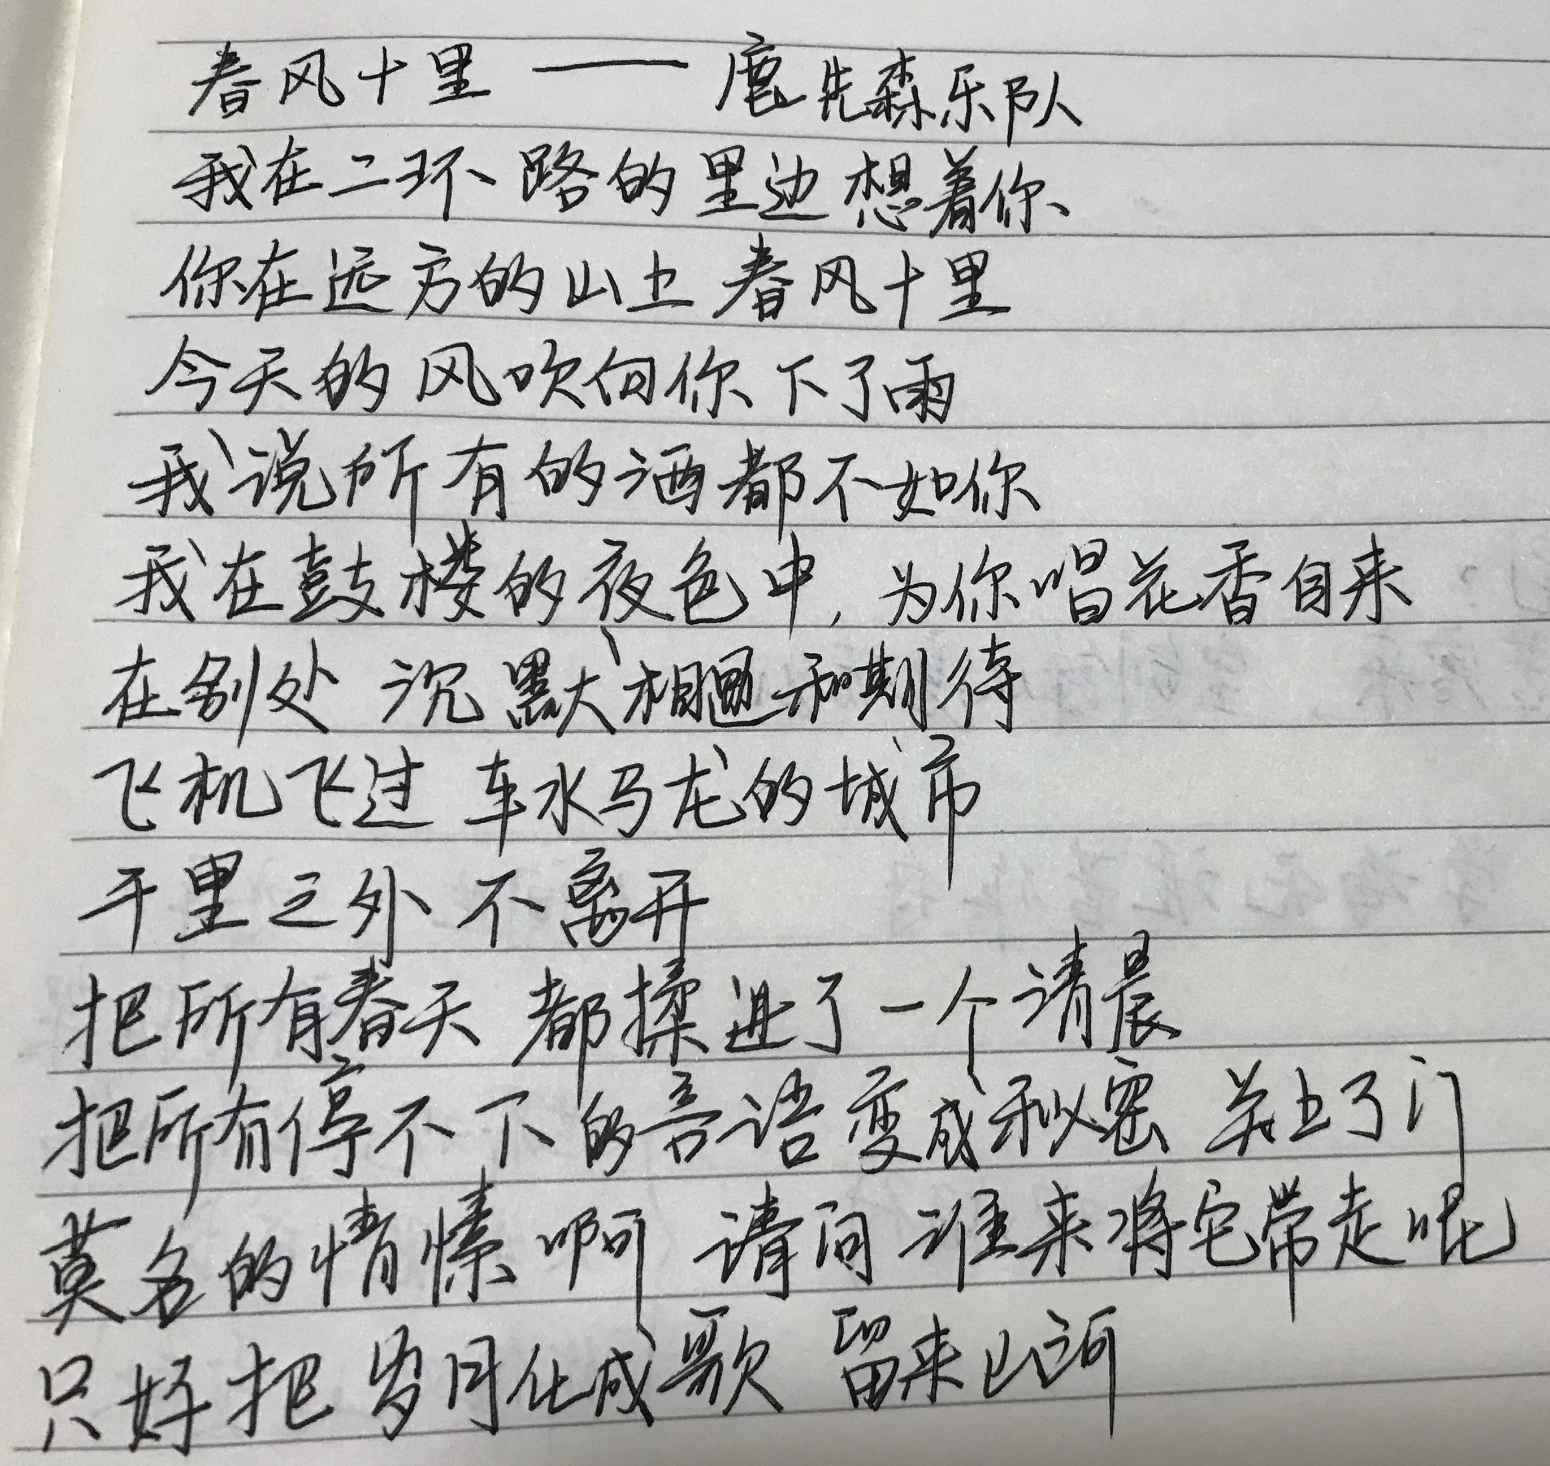 春风十里 —— 鹿先森乐队
我在二环路的里边 想着你
你在远方的山上 春风十里
今天的风吹向你 下了雨
我说所有的酒都不如你
我在鼓楼的夜色中，为你唱花香自来
在别处 沉默 相遇和期待
飞机飞过 车水马龙的城市
千里之外 不离开
把所有春天 都揉进了一个清晨
把所有停不下的言语变成秘密 关上了门
莫名的情愫啊 请问 谁来将它带走呢
只好把岁月化成歌 留来山河